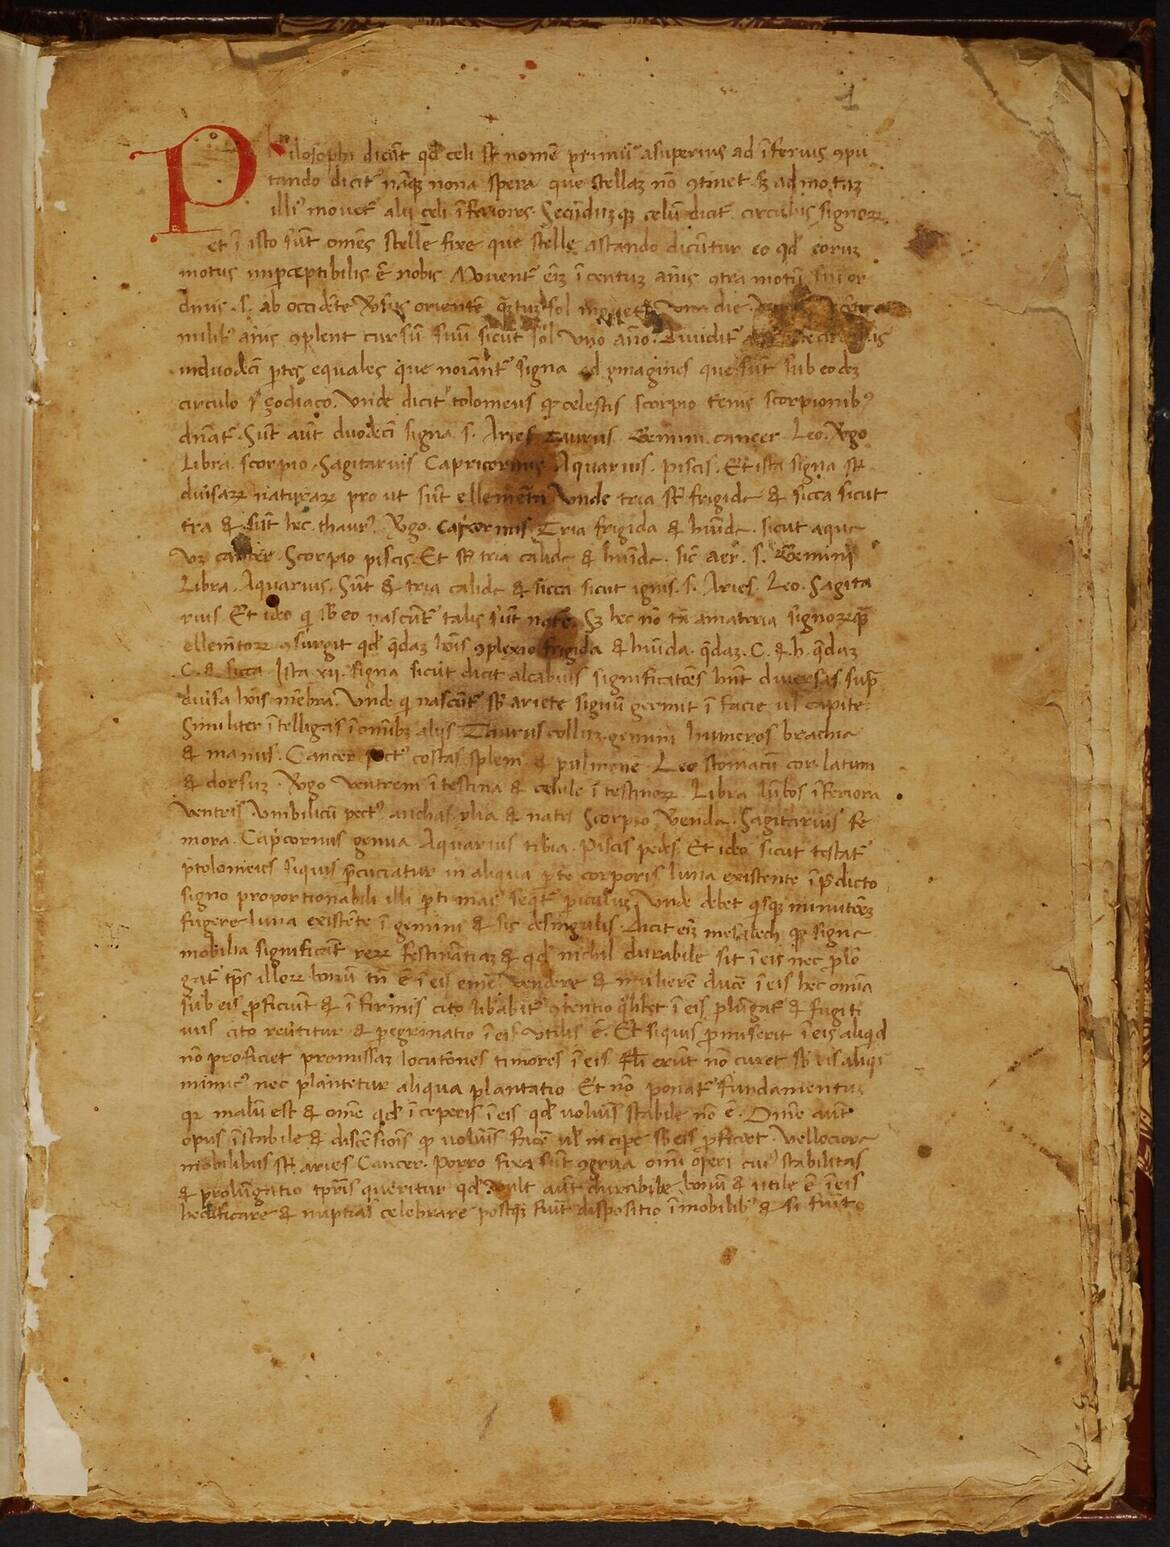 1
Philosophi dicūt qđ celi st̄ nomē primū asuperius ad īferius ꝯpu
tando dicit̄ nāqꝫ nona spera que stellaꝫ nō ꝯtinet sꝫ ad motuꝫ
illi᾽ mouet̄ alij celi īferiores. Secūduꝫqꝫ celū dicit̄ circulus signoꝝ
et ī isto sūt omēs stelle fixe que stelle astando dicūtur eo qđ eoruꝫ
motus inp̄ceptibilis ē nobis Mouent̄ eīꝫ ī centuꝫ anīs ꝯtra motū
dinis .s. ab occidēte v̄sus orientē sol una die
milibꝫ anīs ꝯplent cursū suū sicut sol uno āno. Diuidit̄
induodecī ꝑtes equales que noīant̄ signa ymagines que sūt sub eodeꝫ
circulo s. zodiaco. Vnde dicit tolomeus qꝫ celestis scorpio tenis scorpionibꝫ
dn̄at̄. Sūt aūt duodecī signa .s. Aries Taurus. Gemini. cancer Leo. v̄go
Libra. scorpio. Sagitarius Capricornus Aquarius. piscis. Et ista signa st̄
duisaꝝ naturaꝝ pro ut sūt ellementa Vnde tria st̄ frigide & sicca sicut
tra & sūt hec. thaur᾽. v̄go. Capcornus. Tria frigida & hūide. sicut aque
vꝫ cancer. Scorpio piscis. Et st̄ tria calide & hūide. sic̄ aer. s. Gemini
Libra. Aquarius. Sūt & tria calide & sicca sicut ignis .s. Aries. Leo. Sagita
rius Et ideo qi sb̄ eo nascūt̄ tales sūt nat̄e. Sꝫ hec nō tā amateria signoꝝ
ellemtoꝝ ꝯsurgit qđ q̄daꝫ hōis ꝯplexio frigida & hūida. q̄daꝫ .C. & .h. q̄daꝫ
.C. & sicca Ista .xij. signa sicut dicit alcabius significatōes hn̄t diuersas sup̄
duisa hōis mēbra. Vnde qi nascūt̄ sb̄ ariete signū gerunt ī facie ul̄ capite.
Similiter ītelligas ī omībꝫ alijs Thaurus colluꝫ gemini humeros brachia
& manus. Cancer pect᾽ costas splem & pulmonē. Leo stomacū cor latum
& dorsuꝫ. v̄go ventrem ītestina & celule ītestinoꝝ Libra lūbos īferiora
Ventris Vmbilicū pect᾽ anchas ylia & nates Scorpio verenda. Sagitarius fe
mora. Capcornus genua Aquarius tibia. Piscis pedes. Et ideo sicut testat̄
ptolomeus siquis ꝑcuciatur in aliqua ꝑte corporis luna existente ī p̄dicto
signo proportionabili illi ꝑti mai᾽ seqt̄ ꝑiculuꝫ Vnde debet qisqꝫ minutōeꝫ
fugere luna existēte ī gemini & sic desingulis. Dicit eīꝫ mesalech qꝫ signa
mobilia significāt reꝝ festinātiaꝫ & qđ nichil durabile sit ī eis nec ꝓlō
gat̄ tp̄s illoꝝ bonū tn̄ ē ī eis emē vendere & mulierē ducē ī eis hec omīa
sub eis ꝓficiūt & īfirmis cito libābit̄ ꝯtentio qilibet ī eis plūgat̄ & fugiti
uus cito reūtitur & ꝑegrinatio ī eis utilis ē. Et siquis ꝓmiserit ī eis aliqđ
nō proficiet promissaꝫ locutōnes timores ī eis fl̄i erūt nō curet sb̄ eis aliqi
minus nec plantetur aliqua plantatio Et nō ponat̄ fundamentuꝫ
qꝛ malū est & omē qđ īceperis ī eis qđ uolūis stabile nō ē. Omē aūt
opus īstabile & discēsiois qꝫ uolūis facē ul̄ incipē sb̄ eis ꝓficiet. Vellociora
mobilibus st̄ aries Cancer. Porro fixa sūt ꝯgrua omī oꝑeri cui᾽ stabilitas
& prolūgatio tp̄ris queritur qđ uult aūt durabile bonū & utile ē ī eis
hedificare & nuptias celebrare postqꝫ fuīt dispositio īmobilibꝫ & si fuīt